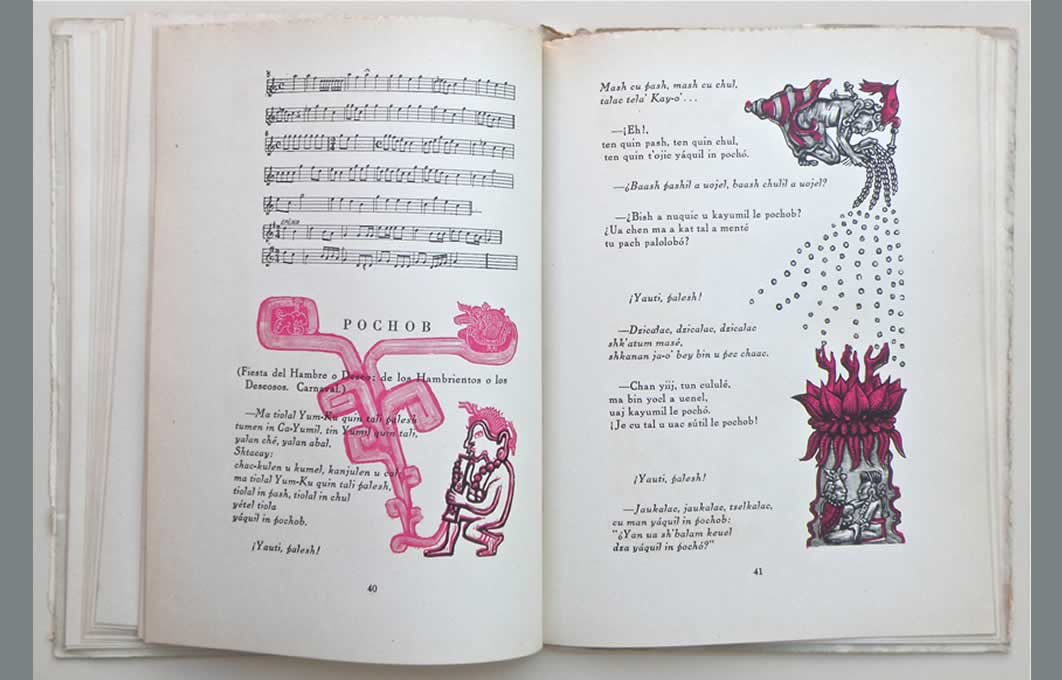 POCHOB
(Fiesta del Hambre o Deseo: de los Hambrientos o los
Deseosos. Carnaval.)
—Ma tiolal Yum-Ku quin tali palesh
tumen in Ca-Yumil, tin Yumil quin tali,
yalan ché, yalan abal,
Shtacay:
chac-kulen u kumel, kanjulen u cal
ma tiolal Yum-Ku quin tali palesh,
tiolal in pash, tiolal in chul
yétel tiola
yáquil in pochob.
¡Yauti, palesh!
40
Mash cu pash, mash cu chul,
talac tela' Kay-o'...
—¡Eh!,
ten quin pash, ten quin chul,
ten quin t'ojic yáquil in pochó.
—¿Baash pashil a uojel, baash chulil a uojel?
—¿Bish a nuquic u kayumil le pochob?
¿Ua chen ma a kat tal a menté
tu pach palolobó?
¡Yauti, palesh!
—Dzicalac, dzicalac, dzicalac
shk'atum masé,
shkanan ja-o' bey bin u pec chaac.
—Chan yiij, tun cululé,
ma bin yocl a uenel,
uaj kayumil le pochó.
¡Je cu tal u uac sútil le pochob!
¡Yauti, palesh!
—Jaukalac, jaukalac, tselkalac,
cu man yáquil in pochob:
"¿Yan ua sh'balam keuel
dza yáquil in pochó?"
41